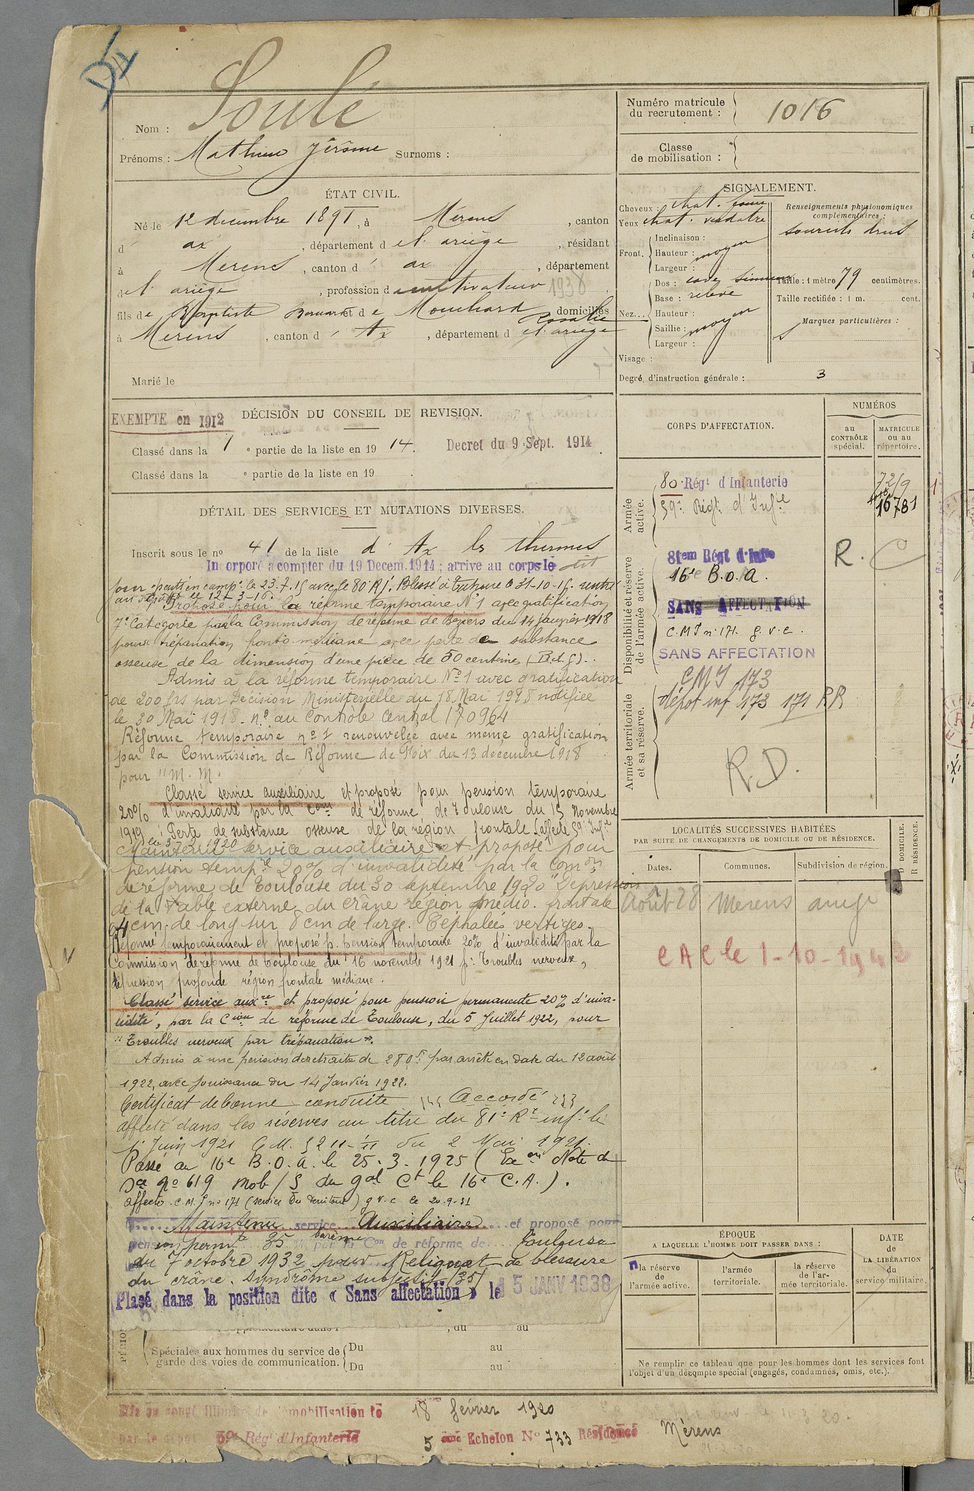 Soulé
Nom :
Prénoms : Mathieu Jérôme Surnoms :
Numéro matricule du recrutement : 1016
Classe de mobilisation :
ÉTAT CIVIL.
Né le 12 décembre 1891, à Mérens, canton
d ax, département d el ariège, résidant
à Merens, canton d ax, département
de l ariège, profession d cultivateur 1938
fils de Baptiste Bernard et d e Mouchard Rosalie domiciliés
à Merens, canton d Ax, département d el ariège
Marié le
SIGNALEMENT.
Cheveux : chat.
Yeux chat. verdatre
Front. Inclinaison :
Hauteur : moyen
Largeur :
Nez. Dos : cave sinueux
Base : relevé
Hauteur :
Saillie : moyen
Largeur :
Visage :
Renseignements physionomiques complémentaires :
sourcils drus
Taille : 1 mètre 79 centimètres.
Taille rectifiée : 1 m. cent.
Marques particulières :
Degré d'instruction générale : 3
EXEMPTE en 1912 DÉCISION DU CONSEIL DE REVISION.
Classé dans la 1 e partie de la liste en 19 14. Decret du 9 Sept. 1914
Classé dans la e partie de la liste en 19 .
DÉTAIL DES SERVICES ET MUTATIONS DIVERSES.
Inscrit sous le no 41 de la liste d' Ax les thermes
Incorporé à compter du 19 Decem. 1914 ; arrive au corps le dit
jour. parti en camp. le 23.7.15 avec le 80 RI. Blessé à le 31-10-15. rentré
au le 12-3-16.
Proposé pour la réforme temporaire N°1 avec gratification
7e Catégorie par la Commission de réforme de Béziers du 14 janvier 1918
pour trépanation fronto médiane avec perte de substance
osseuse de la dimension d'une pièce de 50 centimes (B.d.G).
Admis à la réforme temporaire N°1 avec gratification
de 200 frs par Décision Ministerielle du 18 Mai 1918 notifiée
le 30 Mai 1918. no au Contrôle Central 170964
Réforme temporaire no 1 renouvelée avec même gratification
par la Commission de Réforme de du 13 décembre 1918
pour "M. M."
Classé service auxiliaire et proposé pour pension temporaire
20% d'invalidité par la Con de réforme de Toulouse du 5 Novembre
1919 Perte de substance osseuse de la région frontale
Maintenu service auxiliaire et proposé pour
pension temp. 20% d'invalidité par la Comon
de réforme de Toulouse du 30 septembre 1920 Depression
de la table externe du crâne région médio frontale
4 cm. de long sur 8 cm de large. Céphalées vertiges.
Réformé temporairement et proposé p. pension temporaire 20% d'invalidité par la
Commission de réforme de Toulouse du 16 novembre 1921 p. Troubles nerveux,
dépression profonde région frontale médiane.
Classé service auxre et proposé pour pension permanente 20% d'inva-
lidité, par la Cion de réforme de Toulouse, du 5 Juillet 1922, pour
"Troubles nerveux par trépanation".
Admis à une pension de retraite de 280f par arrêté en date du 12 août
1922, avec jouissance du 14 Janvier 1922.
Certificat de bonne conduite "Accordé"
affecté dans les réserves au titre du 81e Rt inf. le
1r Juin 1921 C.M. § 2 11-II du 2 Mai 1921.
Passé au 16e B.O.A. le 25.3.1925 (Exon Note de
Sce no 619 Mob/S du gal Ct le 16e C.A.).
Affecté C.M.I no 171 g.v.c le 20.9.31
Maintenu service Auxiliaire et proposé pour
pension perm 35 barème par la Con de réforme de Toulouse
du 7 octobre 1932 pour Reliquat de blessure
du crâne. Syndrome subjectif (35)
Plasé dans la position dite « Sans affectation » le 15 JANV 1938
, du au
Spéciales aux hommes du service de garde des voies de communication. Du au
Du au
CORPS D'AFFECTATION.
NUMÉROS
au CONTRÔLE spécial.
MATRICULE ou au répertoire.
Armée active.
80 Régt d'Infanterie 7219
59e Régt d'Infie 16781
Disponibilité et réserve de l'armée active.
81em Régt d'Infie R. C
16e B.O.A.
SANS AFFECTATION
C.M.I no 171. g.v.c.
SANS AFFECTATION
Armée territoriale et sa réserve.
CMI 173
dépot inf 173 171 RR
R.D.
LOCALITÉS SUCCESSIVES HABITÉES
PAR SUITE DE CHANGEMENTS DE DOMICILE OU DE RÉSIDENCE.
Dates. Communes. Subdivision de région. D DOMICILE. R RÉSIDENCE.
Août 28 Merens ariège
CAC le 1-10-1942
ÉPOQUE
A LAQUELLE L'HOMME DOIT PASSER DANS :
la réserve de l'armée active.
l'armée territoriale.
la réserve de l'armée territoriale.
DATE de LA LIBÉRATION du service militaire.
Ne remplir ce tableau que pour les hommes dont les services font
l'objet d'un décompte spécial (engagés, condamnés, omis, etc.).
Mis en congé illimité de démobilisation le 18 février 1920
par le dépôt 59e Régt d'Infanterie 5 ème Echelon No 733 Résidence Mérens